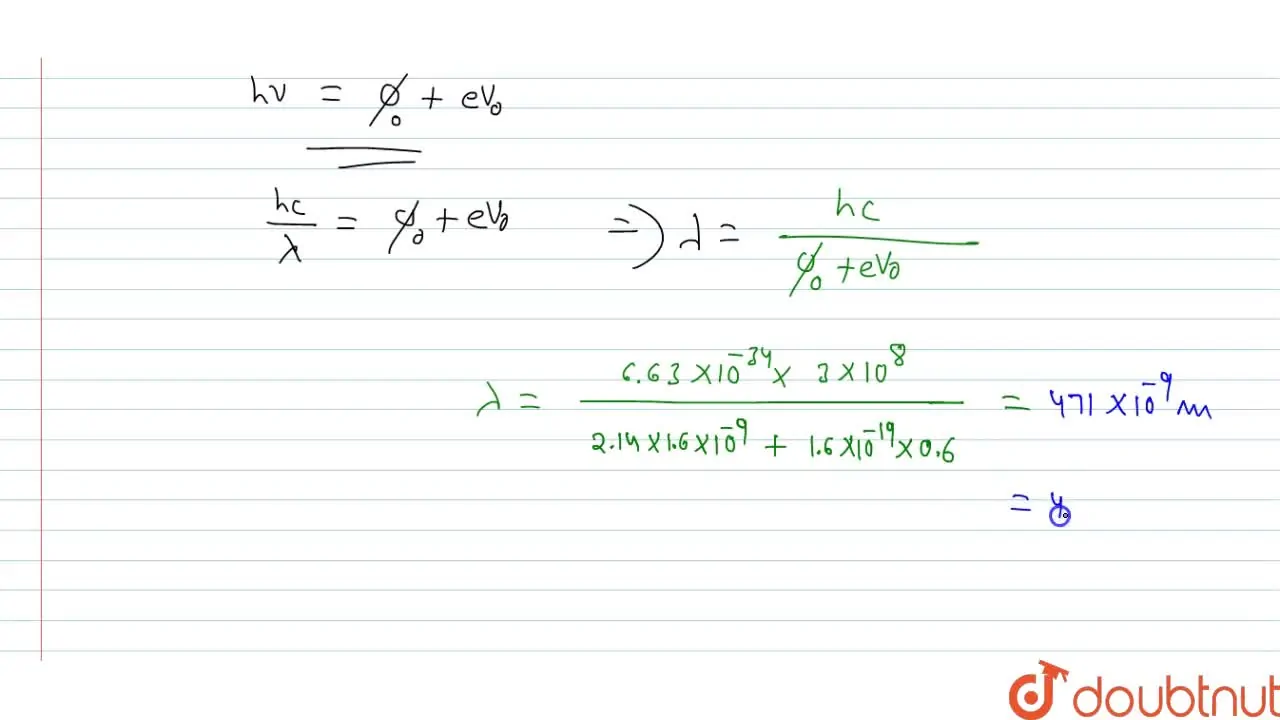 hν = φ₀ + eV₀
hc/λ = φ₀ + eV₀ ⇒ λ = hc/(φ₀ + eV₀)
λ = (6.63 × 10⁻³⁴ × 3 × 10⁸)/(2.14 × 1.6 × 10⁻⁹ + 1.6 × 10⁻¹⁹ × 0.6) = 471 × 10⁻⁹ m
= 4
doubtnut